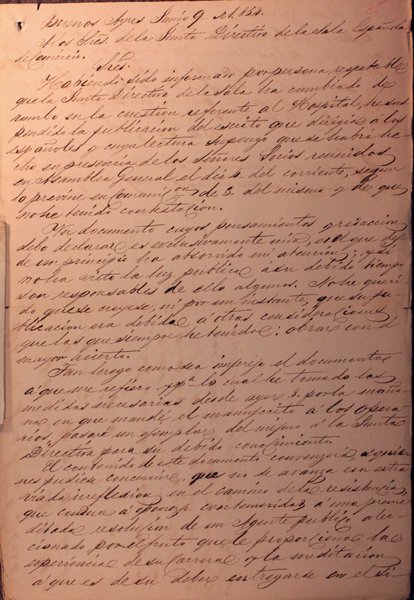 Buenos Ayres Junio 9 de 1854
A los Sres. de la Junta Directiva de la Sala Española
de Comercio.
Sres.
Habiendo sido informado por persona respetable
que la Junta Directiva de la Sala ha cambiado de
rumbo en la cuestion referente al Hospital, he sus-
pendido la publicacion del escrito que dirigia á los
españoles y cuya lectura supongo que se habrá he-
cho en presencia de los Señores Socios reunidos
en Asamblea General el dia 4 del corriente, segun
lo previne en comunicacion de 2 del mismo y de que
no he tenido contestacion.
Un documento cuyos pensamientos y redaccion
debo declarar es exclusivamente mia, es el que des-
de un principio ha absorbido mi atencion; y si
no ha visto la luz publica á su debido tiempo
son responsables de ello algunos. No he queri-
do que se creyese, ni por un instante, que su pu-
blicacion era debida á otras consideraciones
que las que siempre he tenido: obrar con el
mayor acierto.
Tan luego como sea impreso el documento
á que me refiero, para lo cual he tomado las
medidas necesarias desde ayer por la maña-
na, en que mandé el manuscrito á los opera-
rios, pasaré un ejemplar del mismo á la Junta
Directiva para su debido conocimiento.
El contenido de este documento convencerá á quien
pudiese concernir, que no se avanza con estra-
viada irreflexion en el camino de la resistencia
que conduce á oponerse con temeridad á una preme-
ditada resolucion de un Agente publico alec-
cionado por el fruto que le proporciona la
experiencia de su carrera y la meditacion
á que es de su deber entregarse en el si-